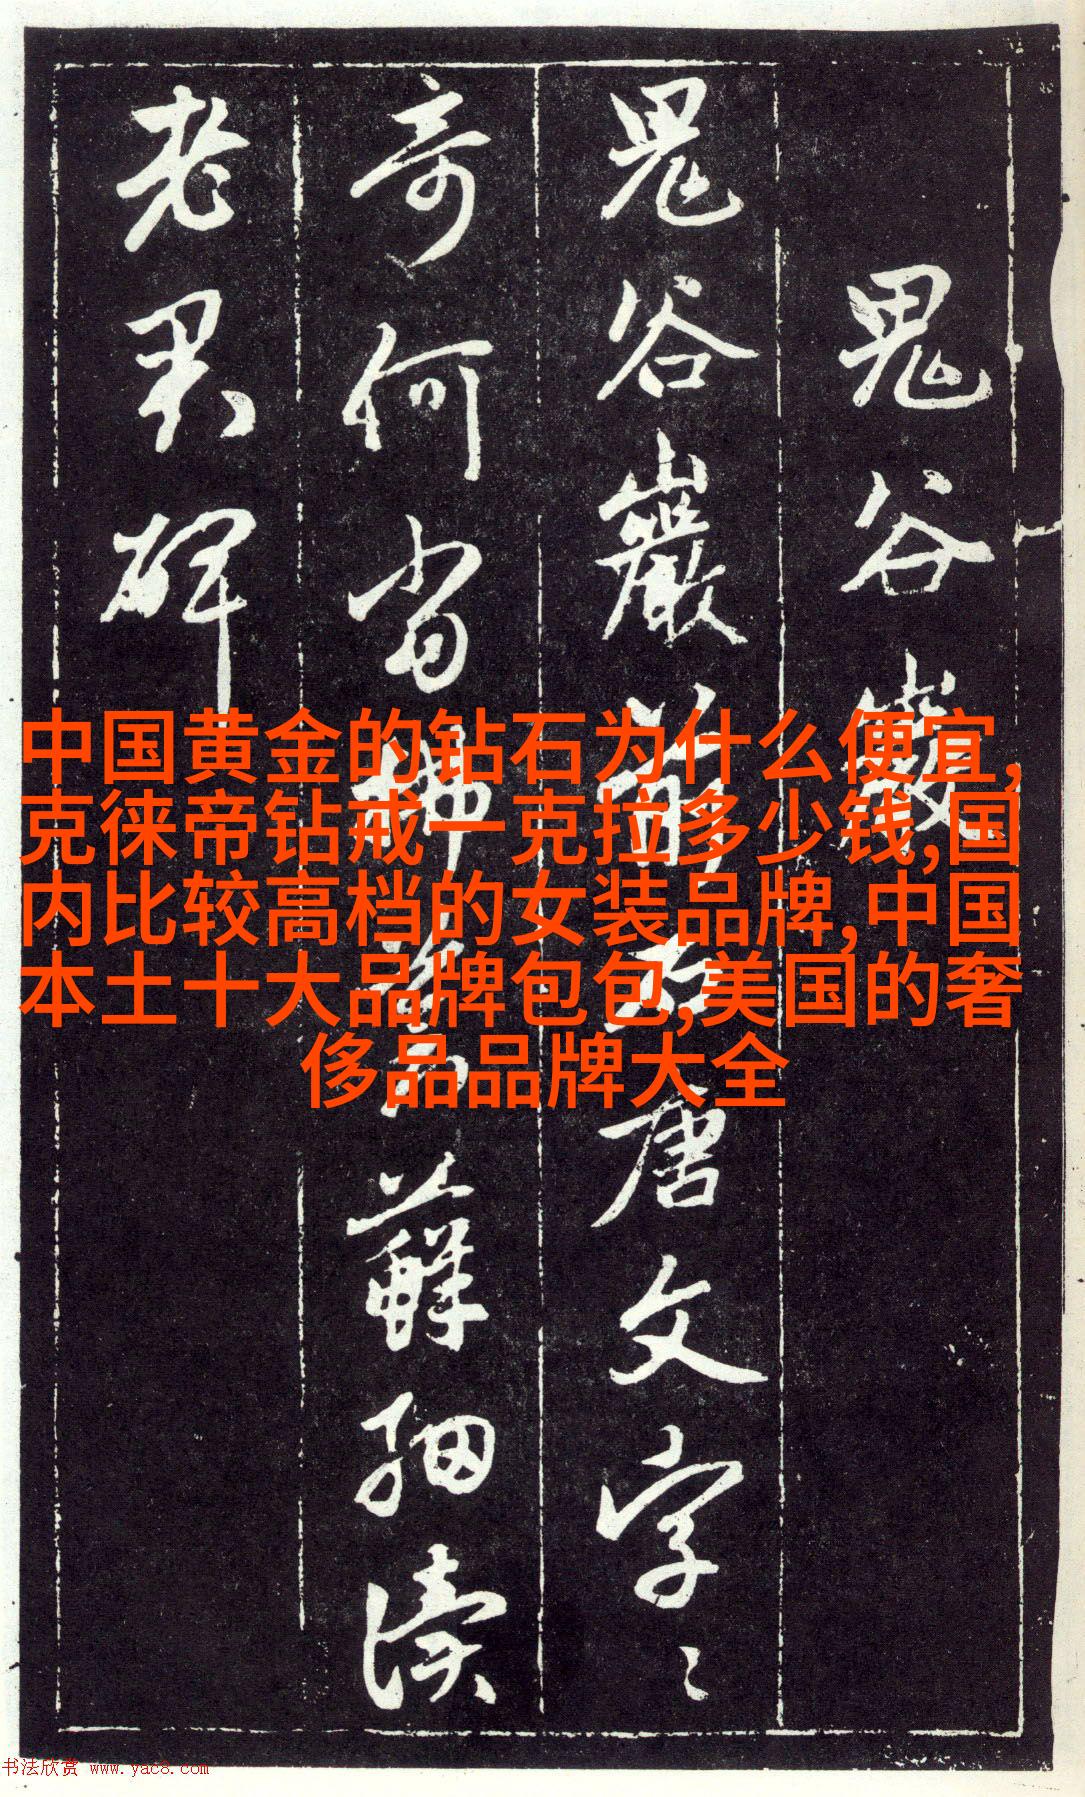 鬼谷巖
鬼谷巖前石唐文字〻
奇何當拂莓蘚細讀
老君碑
中国黄金的钻石为什么便宜,
克徕帝钻戒一克拉多少钱,国
内比较高档的女装品牌,中国
本土十大品牌包包,美国的奢
侈品品牌大全
书法欣赏 www.yac8.com